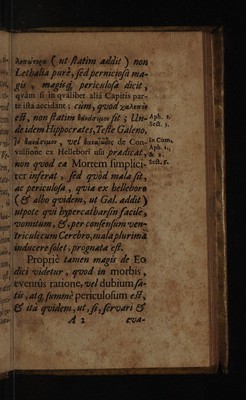 ( ut statim addit ) non
Lethalia purè, sed perniciosa ma-
gis, magisq; periculosa dicit,
qvàm si in qvâlibet aliâ Capitis par-
te ista accidant; cùm, qvod
est, non statim sit; Un-
de idem Hippocrates, Teste Galeno,
vel de Con-
vulsione ex Hellebori usu prædicat,
non qvod ea Mortem simplici-
ter inferat, sed qvòd mala sit,
ac periculosa, qvia ex helleboro
( & albo qvidem, ut Gal. addit )
utpote qvi hypercatharsin facile,
vomitum, & per consensum ven-
triculi cum Cerebro, mala plurima
inducere solet, prognata est.
Propriè tamen magis de Eo
dici videtur, qvod in morbis,
eventûs ratione, vel dubium sa-
tis, atq; summè periculosum est,
& ità qvidem, ut, si, servari &
A 2 eva-
Aph. 2.
Sect. 5.
In Com.
Aph. 1.
& 2.
Sect. 5.